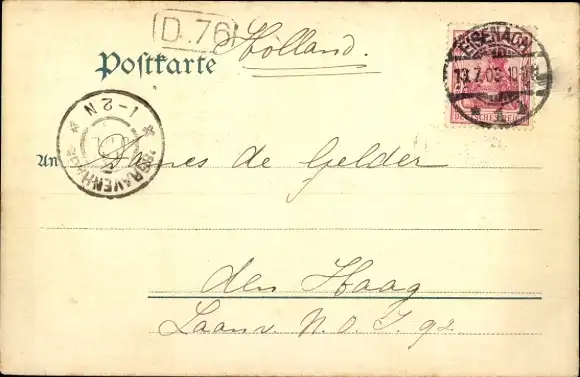 D.76
Holland.
Postkarte
EISENACH
DEUTSCHES REICH
1-2 N
'SGRAVENHAGE
An Dames de Gelder
den Haag
Laan v. N. O. I. 92.